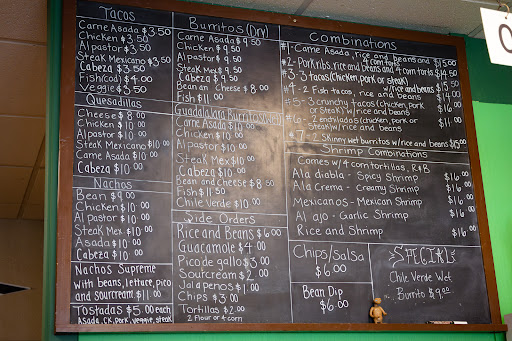 Tacos
Carne Asada $3.50
Chicken $3.50
Al pastor $3.50
Steak Mexicano $3.50
Cabeza $3.50
Fish (cod) $4.00
Veggie $3.50
Quesadillas
Cheese $8.00
Chicken $10.00
Al pastor $10.00
Steak Mexicano $10.00
Carne Asada $10.00
Cabeza $10.00
Nachos
Bean $9.00
Chicken $10.00
Al pastor $10.00
Steak Mex $10.00
Asada $10.00
Cabeza $10.00
Nachos Supreme
with beans, lettuce, pico
and sourcream $11.00
Tostadas $5.00 each
Asada, CK, Pork, veggie, steak
Burritos (Dry)
Carne Asada $9.50
Chicken $9.50
Al pastor $9.50
Steak Mex $9.50
Cabeza $9.50
Bean and Cheese $8.00
Fish $11.00
Guadalajara Burritos (wet)
Carne Asada $10.00
Chicken $10.00
Al pastor $10.00
Steak Mex $10.00
Cabeza $10.00
Bean and Cheese $8.50
Fish $11.50
Chile Verde $10.00
Side Orders
Rice and Beans $6.00
Guacamole $4.00
Pico de gallo $3.00
Sourcream $2.00
Jalapenos $1.00
Chips $3.00
Tortillas $2.00
2 Flour or 4 corn
Combinations
#1- Carne Asada, rice and beans and 4 corn torts $15.00
#2- Pork ribs, rice and beans and 4 corn torts $14.50
#3- 3 tacos (chicken, pork or steak) w/rice and beans $15.00
#4- 2 Fish tacos, rice and beans $14.00
#5- 3 crunchy tacos (chicken, pork
or steak) w/rice and beans
#6- 2 enchiladas (chicken, pork or
steak) w/rice and beans $11.00
#7- 2 Skinny wet burritos w/rice and beans $15.00
Shrimp Combinations
Comes w/4 corn tortillas, R+B
Ala diabla - Spicy Shrimp $16.00
Ala Crema - Creamy Shrimp $16.00
Mexicanos - Mexican Shrimp $16.00
Al ajo - Garlic Shrimp $16.00
Rice and Shrimp $16.00
Chips/Salsa
$6.00
Bean Dip
$6.00
SPECIAL
Chile Verde Wet
Burrito $9.00